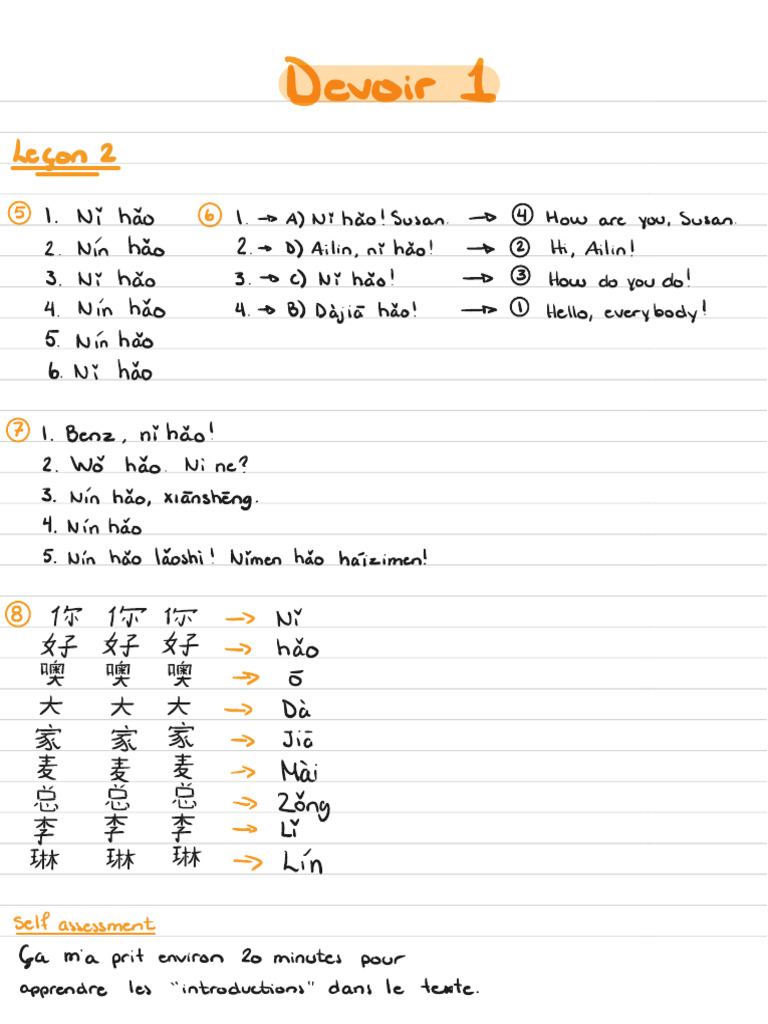 Devoir 1
Leçon 2
⑤ 1. Nǐ hǎo ⑥ 1. → A) Nǐ hǎo! Susan. → ④ How are you, Susan.
2. Nín hǎo 2. → D) Ailin, nǐ hǎo! → ② Hi, Ailin!
3. Nǐ hǎo 3. → C) Nǐ hǎo! → ③ How do you do!
4. Nín hǎo 4. → B) Dàjiā hǎo! → ① Hello, everybody!
5. Nín hǎo
6. Nǐ hǎo
⑦ 1. Benz, nǐ hǎo!
2. Wǒ hǎo. Ni ne?
3. Nín hǎo, xiānshēng.
4. Nín hǎo
5. Nín hǎo lǎoshi! Nǐmen hǎo háizimen!
⑧ 你 你 你 → Nǐ
好 好 好 → hǎo
噢 噢 噢 → ō
大 大 大 → Dà
家 家 家 → Jiā
麦 麦 麦 → Mài
总 总 总 → Zǒng
李 李 李 → Lǐ
琳 琳 琳 → Lín
Self assessment
Ça m'a prit environ 20 minutes pour
apprendre les "introductions" dans le texte.